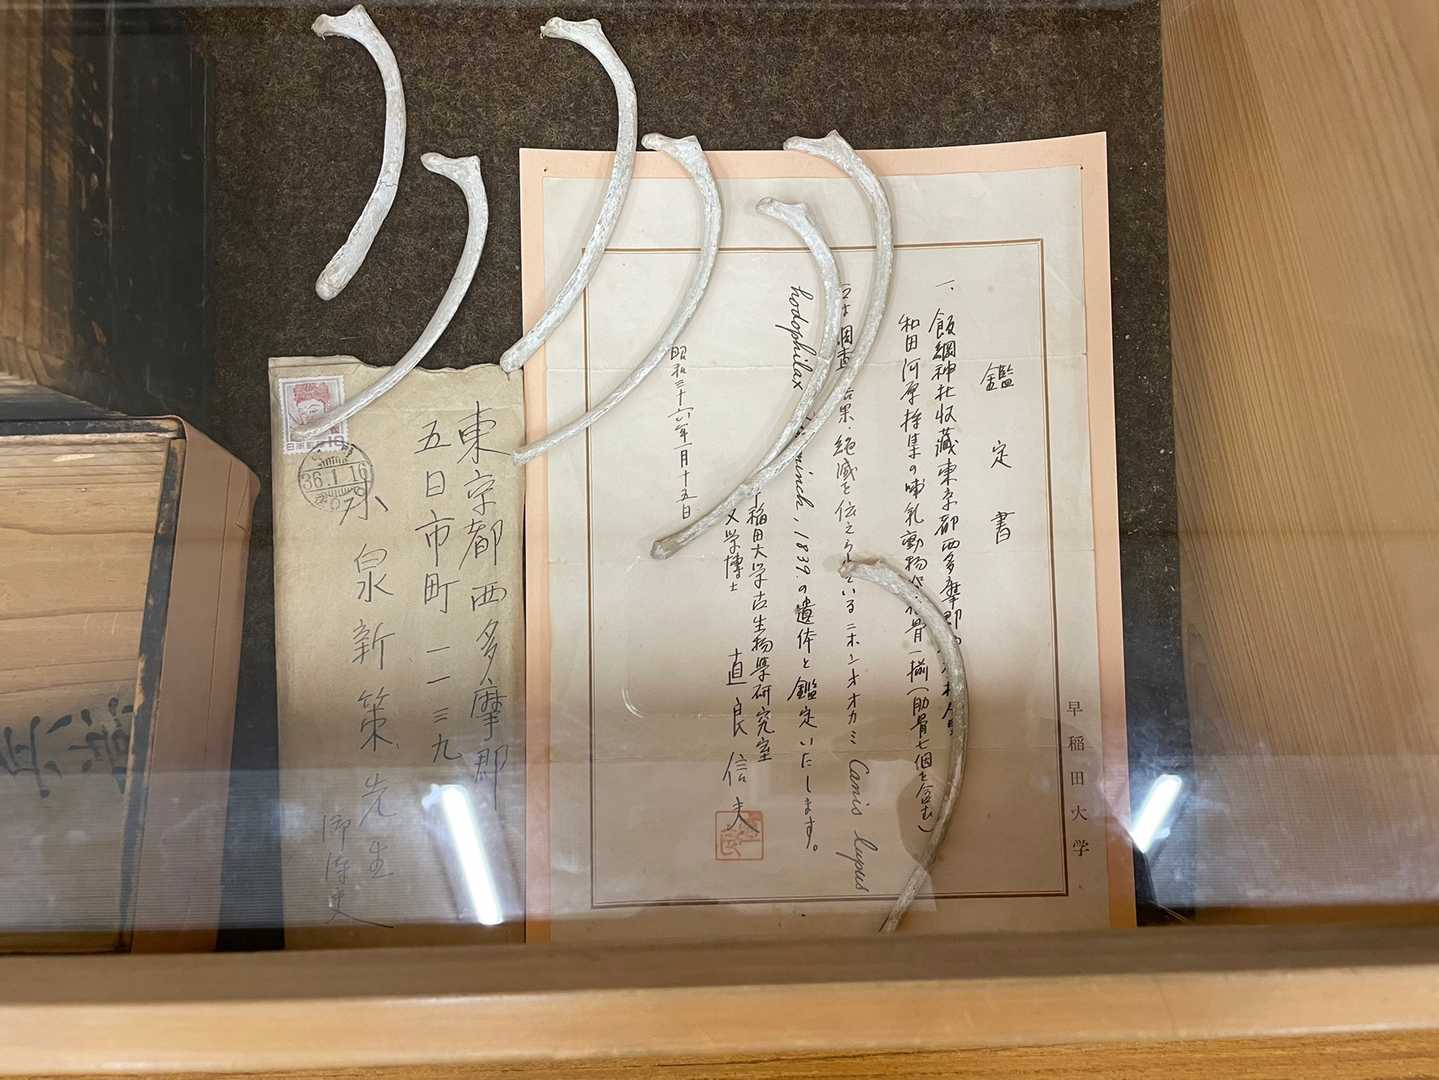 鑑定書
一、飯綱神社収蔵東京都西多摩郡
和田河原採集の哺乳動物 骨一揃(肋骨七個を含む)
調査 結果、絶滅を伝えられているニホンオオカミ Canis lupus
hodophilax Temminck, 1839.の遺体と鑑定いたします。
昭和三十六年一月十五日
早稲田大学古生物学研究室
文学博士 直良信夫
早稲田大学
東京都西多摩郡
五日市町一一三九
小泉新策先生
御侍史
日本郵便
10
36.1.16